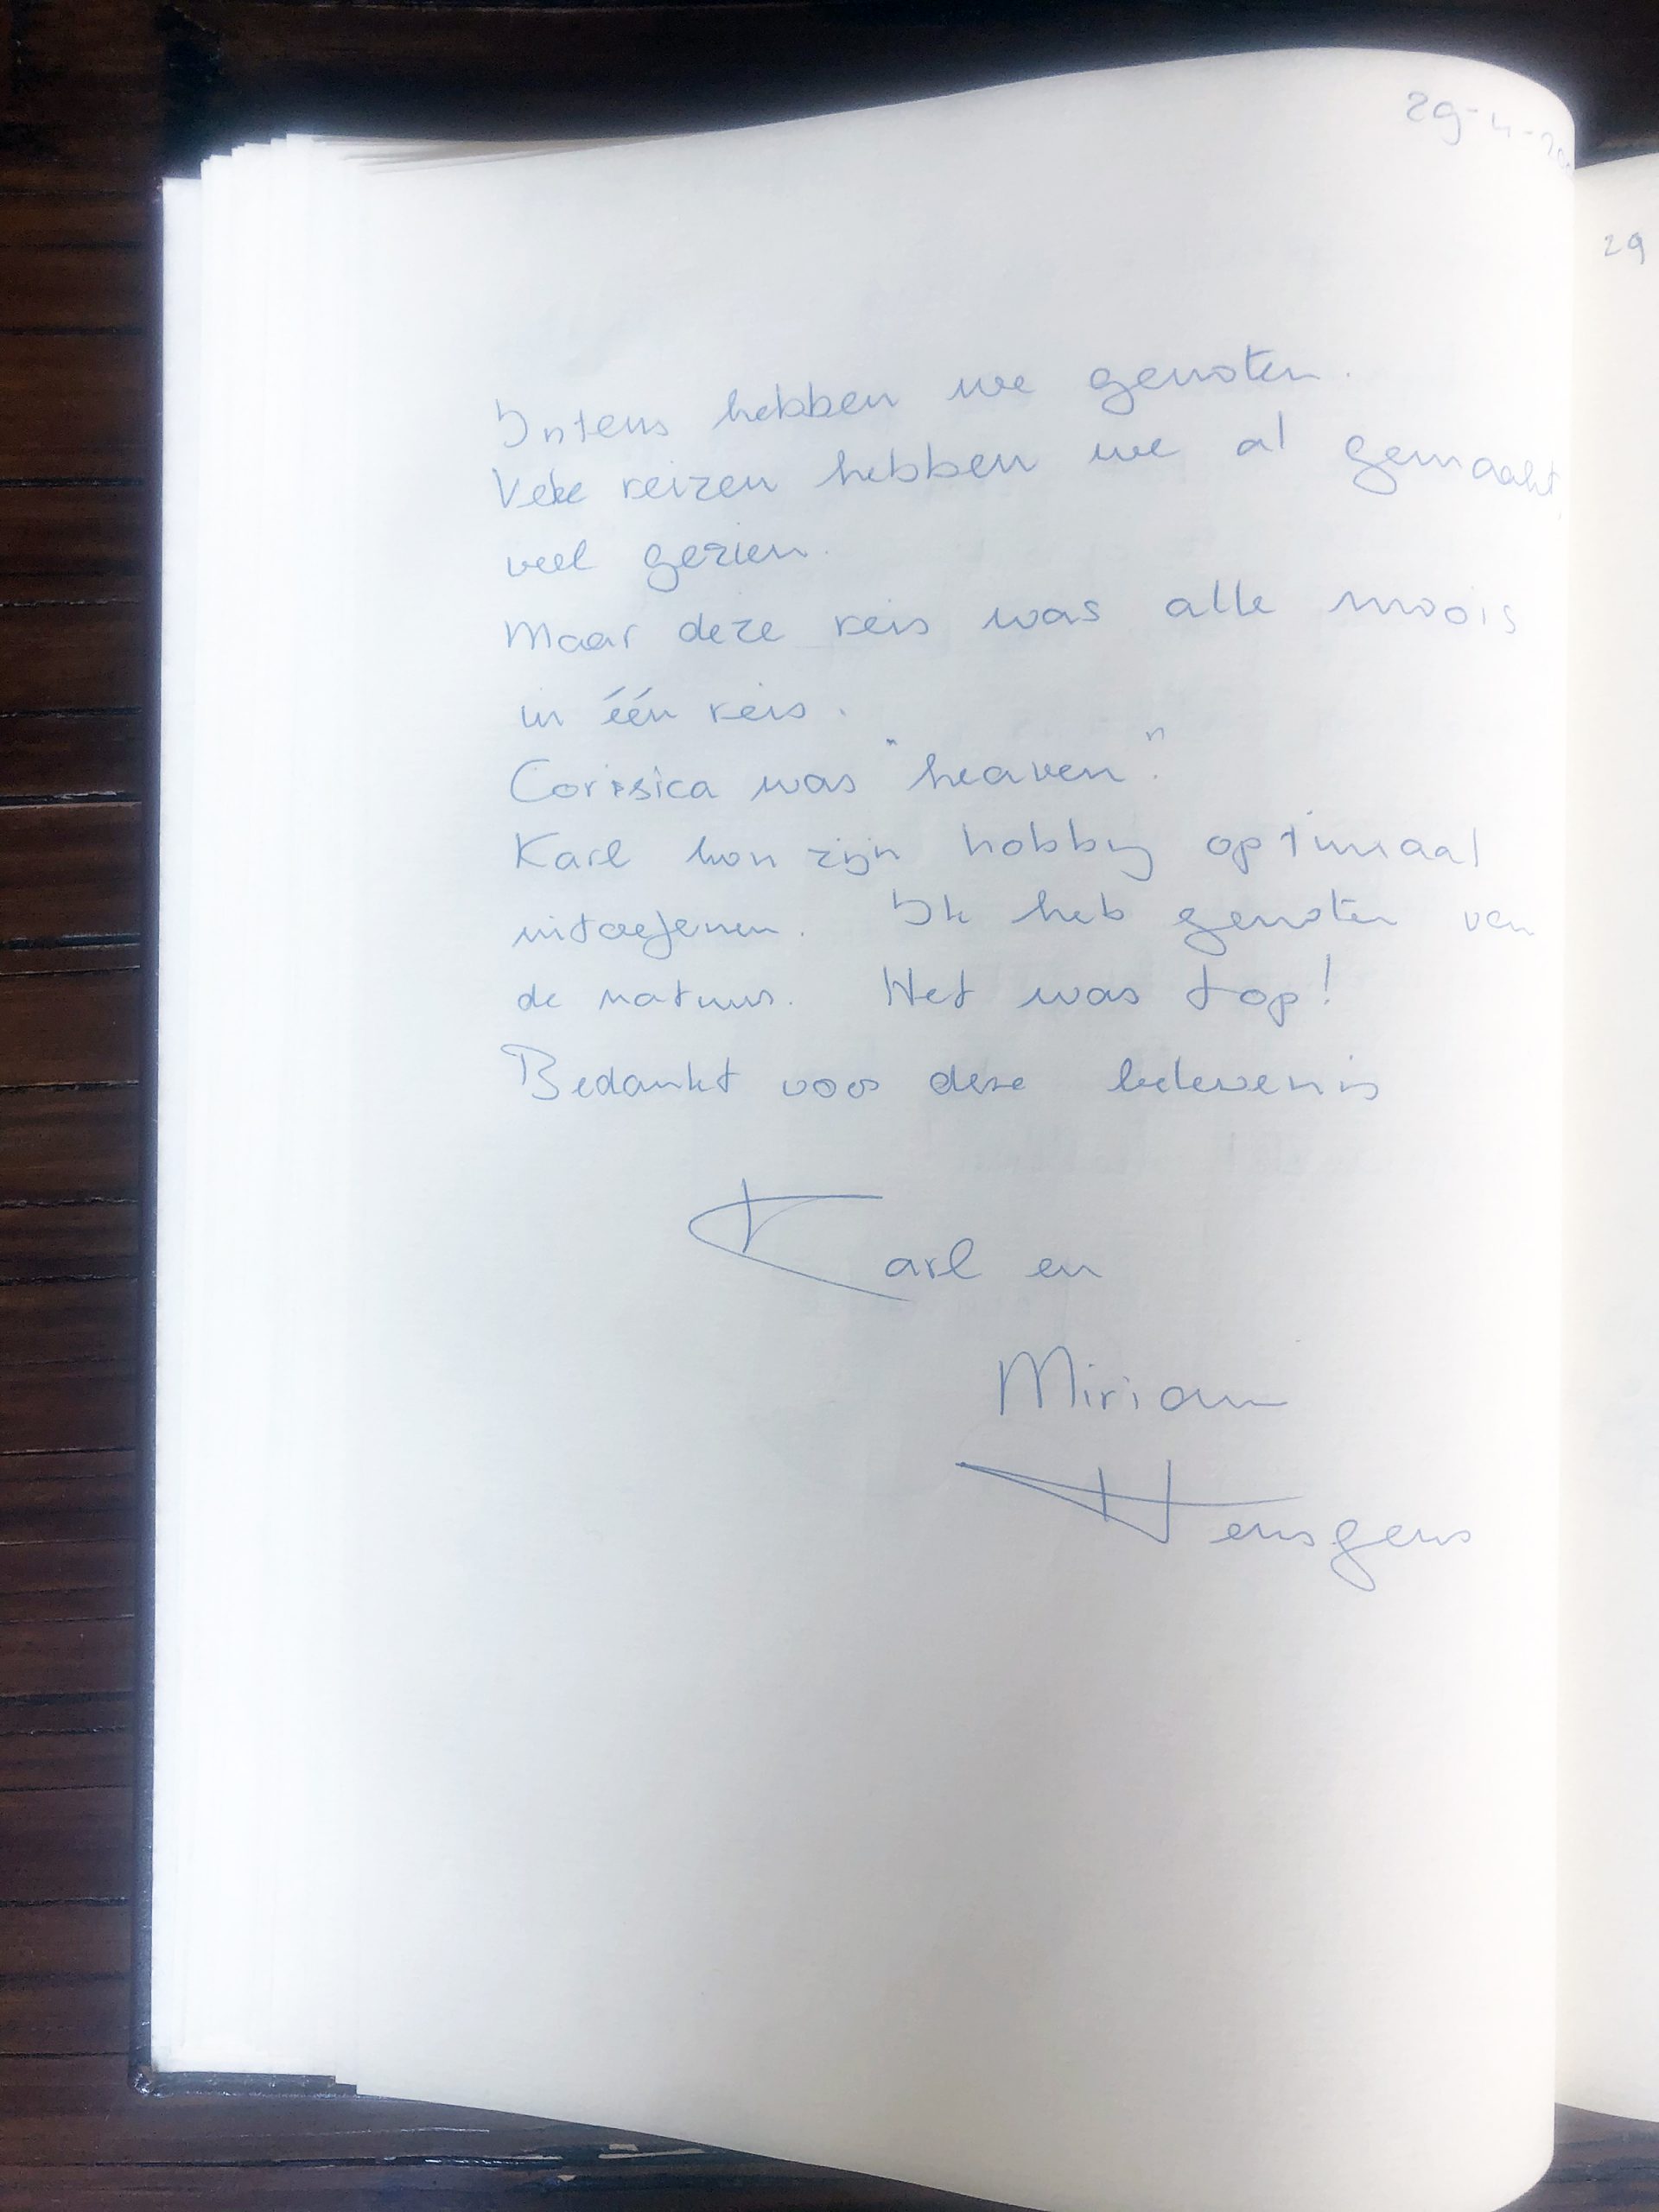 29-4-20
Intens hebben we genoten.
Vele reizen hebben we al gemaakt,
veel gezien.
Maar deze reis was alle moois
in één reis.
Corssica was "heaven".
Karl kon zijn hobby optimaal
uitoefenen. Ik heb genoten van
de natuur. Het was top!
Bedankt voor deze belevenis
Karl en
Miriam
Hensgens
29